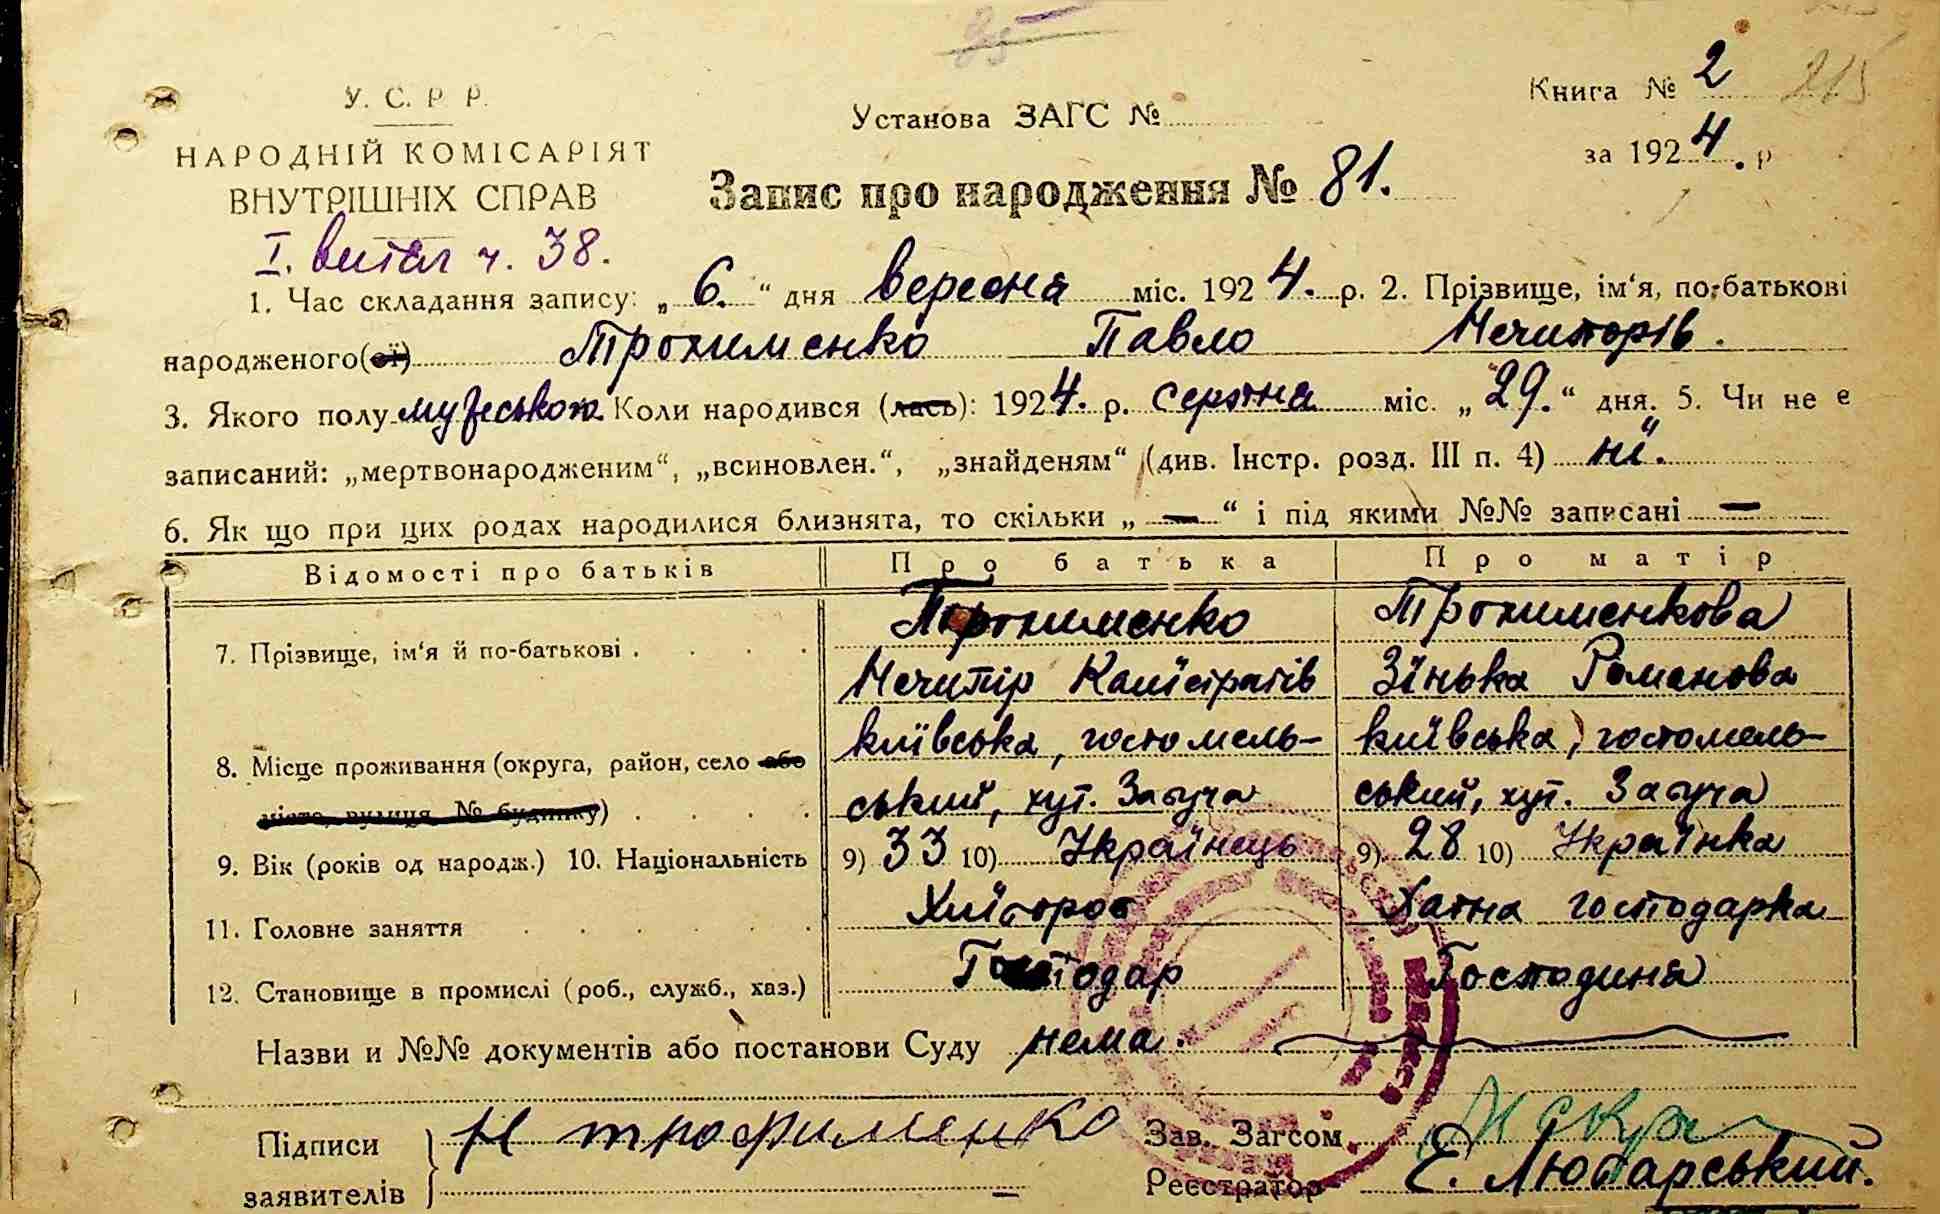 У. С. Р. Р.
НАРОДНІЙ КОМІСАРІЯТ
ВНУТРІШНІХ СПРАВ
І. витяг ч. 38.
Установа ЗАГС №
Книга № 2 215
за 1924. р
Запис про народження № 81.
1. Час складання запису: „ 6. “ дня вересня міс. 1924. р. 2. Прізвище, ім'я, по-батькові
народженого(ої) Трохименко Павло Нечипорів.
3. Якого полу мужеського Коли народився (лась): 1924. р. серпня міс. „ 29. “ дня. 5. Чи не є
записаний: „мертвонародженим“, „всиновлен.“, „знайденям“ (див. Інстр. розд. III п. 4) ні.
6. Як що при цих родах народилися близнята, то скільки „ — “ і під якими №№ записані —
Відомості про батьків Про батька Про матір
7. Прізвище, ім'я й по-батькові . Трохименко Трохименкова
Нечипір Калістратів Зінька Романова
8. Місце проживання (округа, район, село або київська, гостомель- київська, гостомель-
місто, вулиця, № будинку) ський, хут. Забуча ський, хут. Забуча
9. Вік (років од народж.) 10. Національність 9) 33 10) Українець 9) 28 10) Українка
11. Головне заняття Хлібороб Хатня господарка
12. Становище в промислі (роб., служб., хаз.) Господар Господиня
Назви и №№ документів або постанови Суду нема.
Підписи Н трофименко Зав. Загсом
заявителів — Реєстратор Є. Любарський.